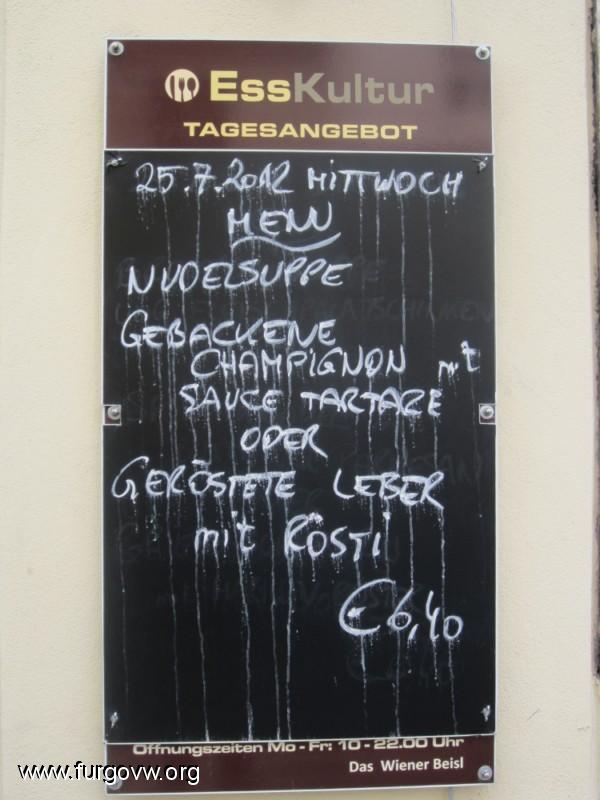 EssKultur
TAGESANGEBOT
25.7.2012 MITTWOCH
MENU
NUDELSUPPE
GEBACKENE
CHAMPIGNON mit
SAUCE TARTARE
ODER
GERÖSTETE LEBER
mit RÖSTI
€ 6,40
Öffnungszeiten Mo - Fr: 10 - 22.00 Uhr
Das Wiener Beisl
www.furgovw.org